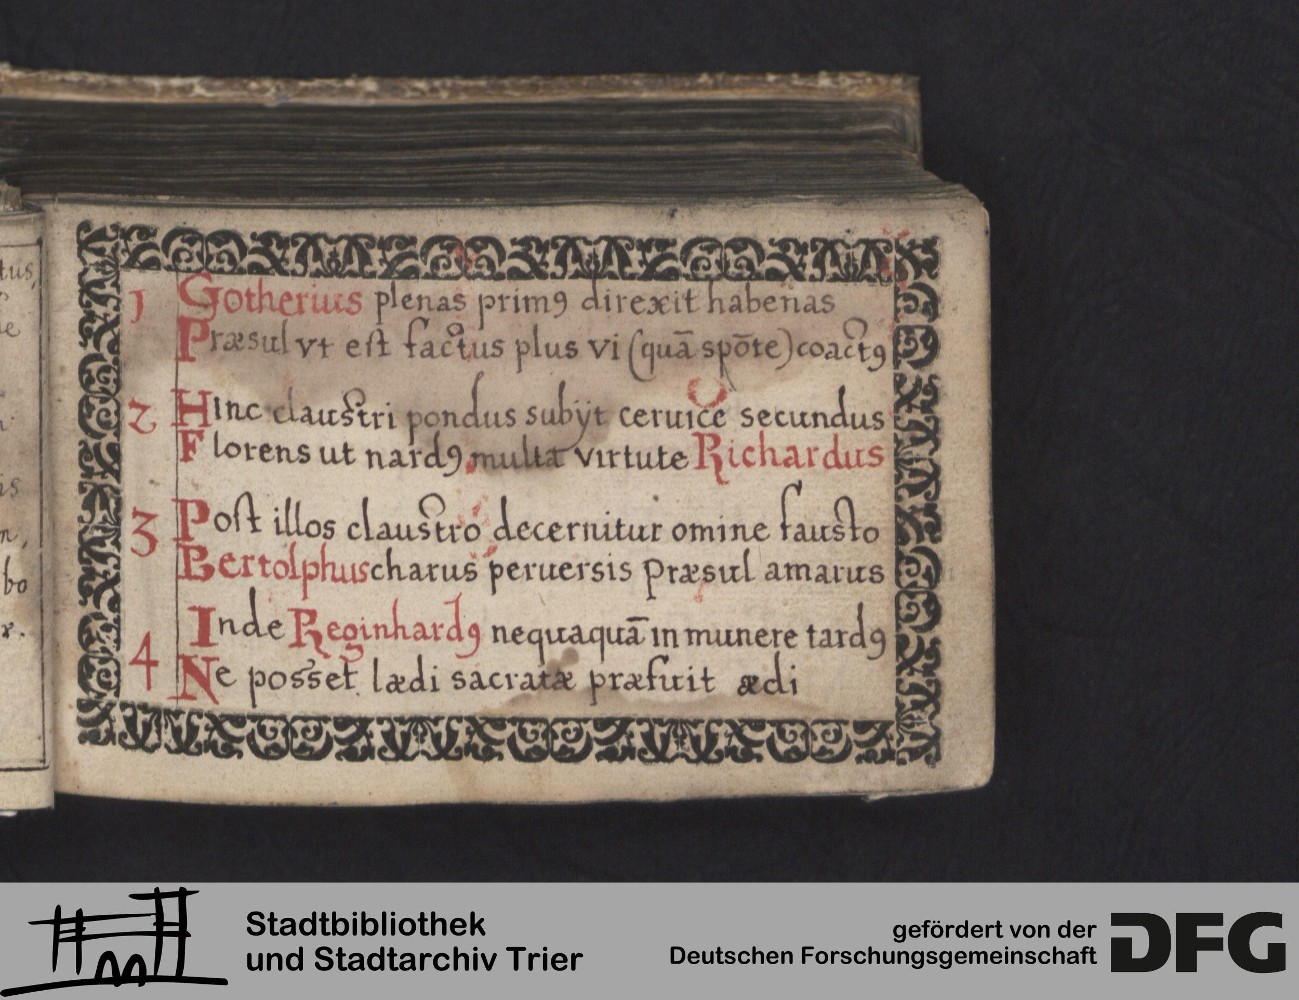 tus,
1 Gotherius plenas primꝰ direxit habenas
Præsul vt est factus plus vi (quā spōte) coactꝰ
2 Hinc claustri pondus subÿt ceruice secundus
Florens ut nardꝰ multa virtute Richardus
3 Post illos claustro decernitur omine fausto
Bertolphus charus peruersis Præsul amarus
bo
4 Inde Reginhardꝰ nequaquā in munere tardꝰ
Ne posset lædi sacratæ præfuit ædi
Stadtbibliothek
und Stadtarchiv Trier
gefördert von der
Deutschen Forschungsgemeinschaft
DFG